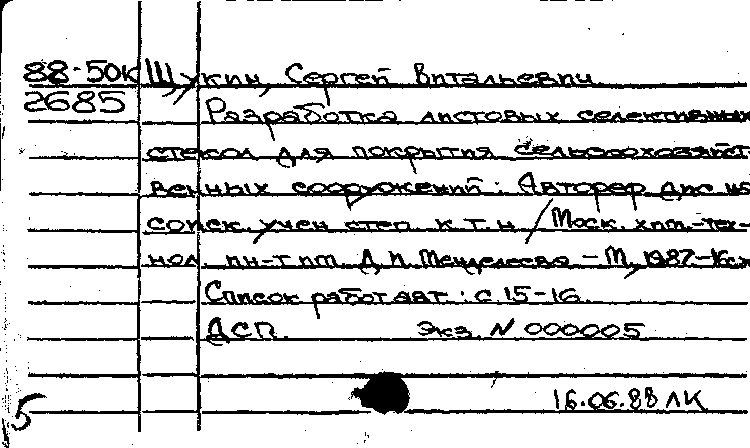 88-50к Щукин, Сергей Витальевич
2685 Разработка листовых селективных
стекол для покрытия сельскохозяйст-
венных сооружений: Автореф дис на
соиск. учен степ. к.т.н / Моск. хим.-тех-
нол. ин-т им. Д.И. Менделеева - М, 1987.-16с
Список работ авт.: с.15-16.
ДСП. Экз. N 000005
16.06.88 ЛК
5